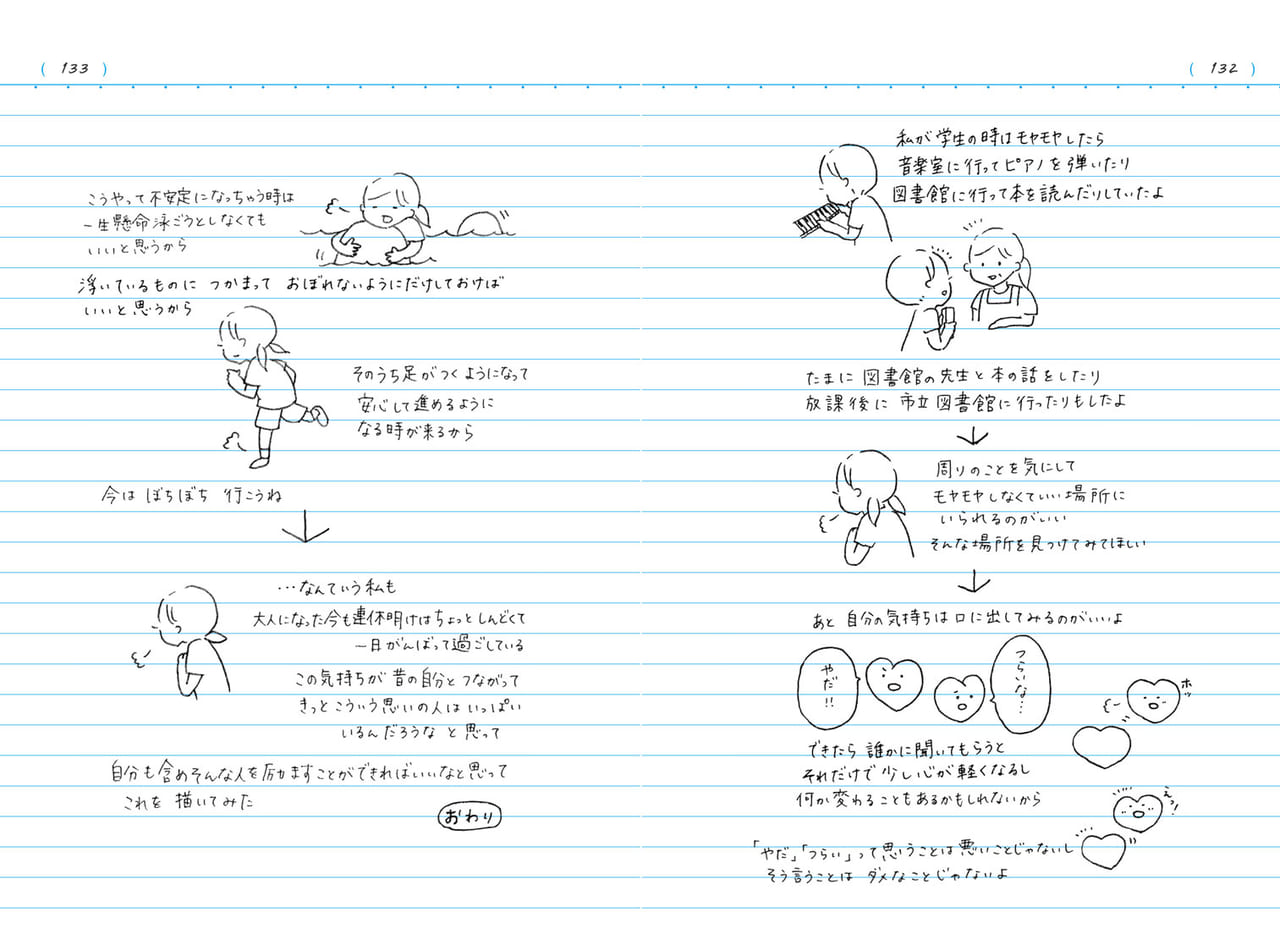 ( 132 )
私が学生の時はモヤモヤしたら
音楽室に行ってピアノを弾いたり
図書館に行って本を読んだりしていたよ
たまに 図書館の先生と本の話をしたり
放課後に 市立図書館に行ったりもしたよ
↓
周りのことを気にして
モヤモヤしなくていい場所に
いられるのがいい
そんな場所を見つけてみてほしい
↓
あと 自分の気持ちは口に出してみるのがいいよ
つらいな…
やだ!!
ホッ
できたら 誰かに聞いてもらうと
それだけで 少し心が軽くなるし
何か変わることもあるかもしれないから
えっ!
「やだ」「つらい」って思うことは悪いことじゃないし
そう言うことは ダメなことじゃないよ
( 133 )
こうやって不安定になっちゃう時は
一生懸命泳ごうとしなくても
いいと思うから
浮いているものに つかまって おぼれないようにだけしておけば
いいと思うから
そのうち足がつくようになって
安心して進めるように
なる時が来るから
今は ぼちぼち 行こうね
↓
…なんていう私も
大人になった今も連休明けはちょっとしんどくて
一日がんばって過ごしている
この気持ちが昔の自分とつながって
きっとこういう思いの人は いっぱい
いるんだろうな と思って
自分も含めそんな人を励ますことができればいいなと思って
これを 描いてみた
おわり